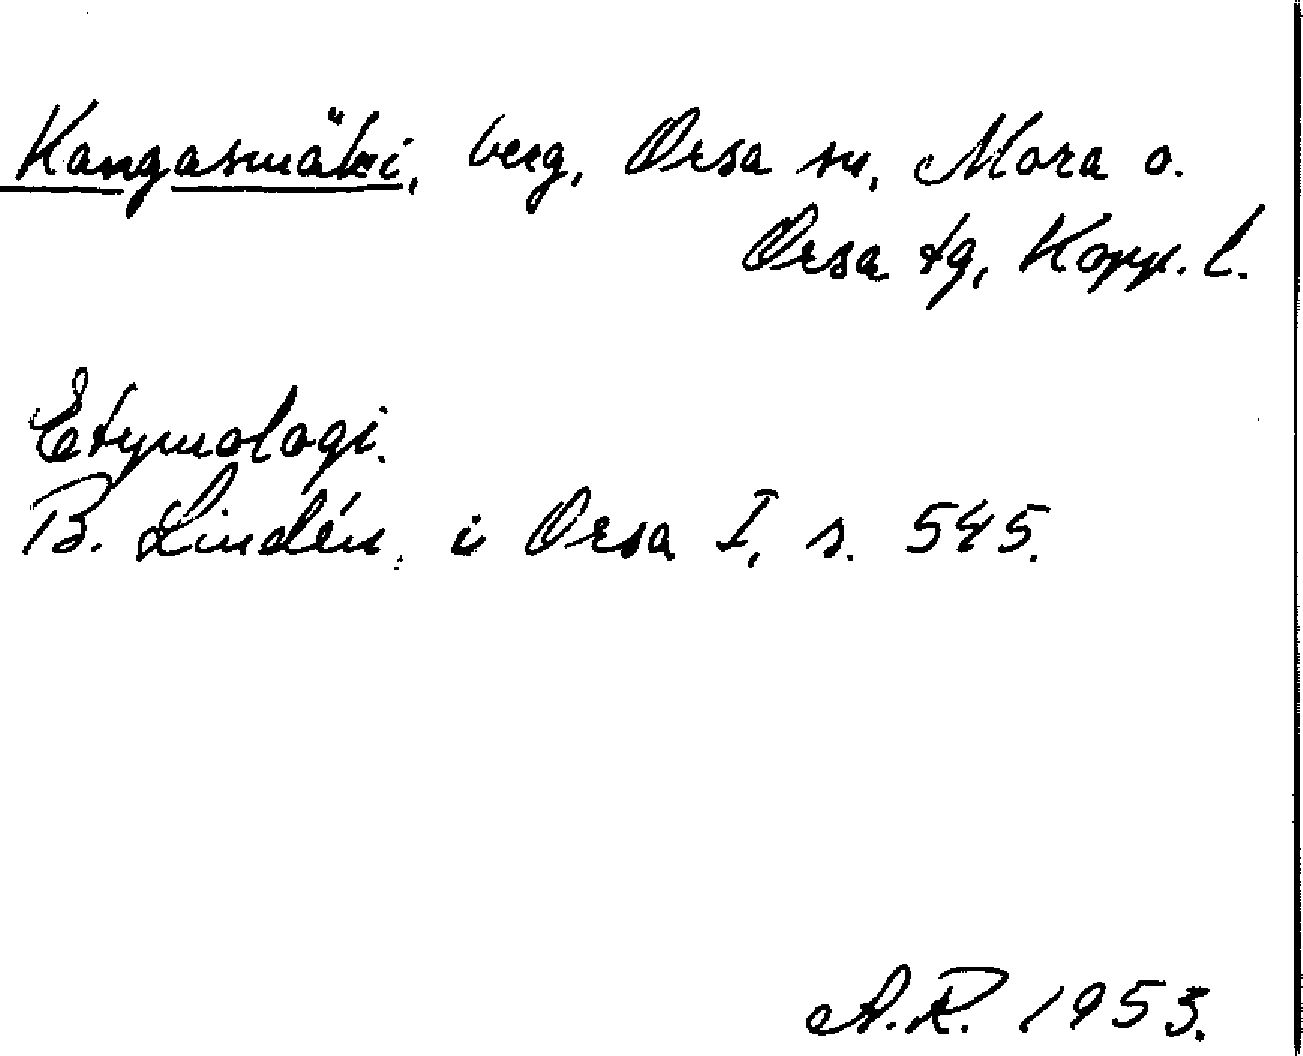 Kangasmäki, berg, Orsa sn, Mora o.
Orsa tg, Kopp. l.
Etymologi.
B. Lindén i Orsa I, s. 545.
A.R. 1953.